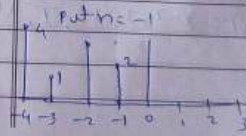 put n = -1
4
1
2
-4 -3 -2 -1 0 1 2 3